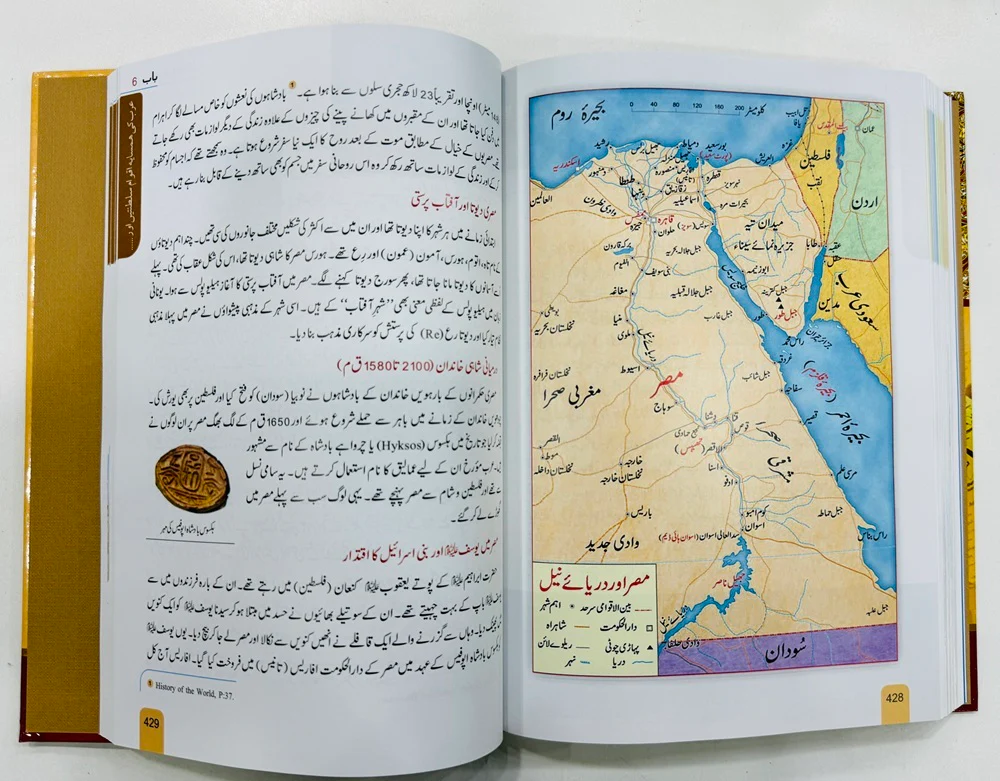 بحیرۂ روم
0 40 80 120 160 200 کلومیٹر
تل ابیب
یافا
بیت المقدس
عمان
غزہ
فلسطین
نقب
اردن
العریش
بورسعید
(پورٹ سعید)
دمیاط
رشید
اسکندریہ
دمنہور
العالمین
طنطا
وادی نطرون
منصورہ
زقازیق
اسماعیلیہ
قنطرہ
نہر سویز
بحیرات مرہ
قاہرہ
جیزہ
حلوان
سویس (سویز)
میدان تیہ
جزیرہ نمائے سیناء
عقبہ
طابا
برکہ قارون
الفیوم
بنی سویف
جبل جلالہ بحریہ
ابوزنیمہ
مغاغہ
جبل جلالہ قبلیہ
جبل کترینہ
جبل طور
طور
مدین
سعودی عرب
راس محمد
نخلستان بحریہ
ملوی
جبل غارب
دریائے نیل
اسیوط
غردقہ
نخلستان فرافرہ
مغربی صحرا
مصر
سوہاج
جبل شائب
سفاجہ
بحیرۂ احمر
(بحیرۂ قلزم)
قنا
قوص
نجع حمادی
قصیر
الاقصر
القصر
موط
نخلستان داخلہ
خارجہ
نخلستان خارجہ
اسنا
ادفو
مشرقی صحرا
مرسی علم
باریس
کوم امبو
اسوان
جبل حماطہ
سد العالی اسوان (اسوان ہائی ڈیم)
راس بناس
وادی جدید
جھیل ناصر
جبل علبہ
وادی حلفا
سُودان
مصر اور دریائے نیل
بین الاقوامی سرحد
اہم شہر
دارالحکومت
شاہراہ
پہاڑی چوٹی
ریلوے لائن
دریا
نہر
428
باب 6
عرب کی ہمسایہ اقوام سلطنتیں اور.....
میٹر) اونچا اور تقریباً 23 لاکھ حجری سلوں سے بنا ہوا ہے۔ ❶ بادشاہوں کی نعشوں کو خاص مسالے لگا کر اہرام
کیا جاتا تھا اور ان کے مقبروں میں کھانے پینے کی چیزوں کے علاوہ زندگی کے دیگر لوازمات بھی رکھے جاتے
مصریوں کے خیال کے مطابق موت کے بعد روح کا ایک نیا سفر شروع ہوتا ہے۔ وہ سمجھتے تھے کہ اجسام کو محفوظ
اور زندگی کے لوازمات ساتھ رکھ کر وہ اس روحانی سفر میں جسم کو بھی ساتھ دینے کے قابل بنا رہے ہیں۔
مصری دیوتا اور آفتاب پرستی
ابتدائی زمانے میں ہر شہر کا اپنا دیوتا تھا اور ان میں سے اکثر کی شکلیں مختلف جانوروں کی سی تھیں۔ چند اہم دیوتاؤں
ہورس، آمون (عمون) اور رع تھے۔ ہورس مصر کا شاہی دیوتا تھا، اس کی شکل عقاب کی تھی۔ پہلے
آسمانوں کا دیوتا مانا جاتا تھا، پھر سورج دیوتا کہنے لگے۔ مصر میں آفتاب پرستی کا آغاز ہیلیوپولس سے ہوا۔ یونانی
میں ہیلیوپولس کے لفظی معنی بھی ’’شہر آفتاب‘‘ کے ہیں۔ اسی شہر کے مذہبی پیشواؤں نے مصر میں پہلا مذہبی
تیار کیا اور دیوتا رع (Re) کی پرستش کو سرکاری مذہب بنا دیا۔
درمیانی شاہی خاندان (2100 تا 1580 ق م)
مصری حکمرانوں کے بارہویں خاندان کے بادشاہوں نے نوبیا (سوڈان) کو فتح کیا اور فلسطین پر بھی یورش کی۔
خاندان کے زمانے میں باہر سے حملے شروع ہوئے اور 1650 ق م کے لگ بھگ مصر پر ان لوگوں نے
کر لیا جو تاریخ میں ہکسوس (Hyksos) یا چرواہے بادشاہ کے نام سے مشہور
عرب مؤرخ ان کے لیے عمالیق کا نام استعمال کرتے ہیں۔ یہ سامی نسل
تھے اور فلسطین و شام سے مصر پہنچے تھے۔ یہی لوگ سب سے پہلے مصر میں
گھوڑے لے کر گئے۔
ہکسوس بادشاہ اپوفیس کی مہر
مصر میں یوسف علیہ السلام اور بنی اسرائیل کا اقتدار
حضرت ابراہیم علیہ السلام کے پوتے یعقوب علیہ السلام کنعان (فلسطین) میں رہتے تھے۔ ان کے بارہ فرزندوں میں سے
یوسف علیہ السلام باپ کے بہت چہیتے تھے۔ ان کے سوتیلے بھائیوں نے حسد میں مبتلا ہو کر سیدنا یوسف علیہ السلام کو ایک کنویں
پھینک دیا۔ وہاں سے گزرنے والے ایک قافلے نے انھیں کنویں سے نکالا اور مصر لے جا کر بیچ دیا۔ یوں یوسف علیہ السلام
ہکسوس بادشاہ اپوفیس کے عہد میں مصر کے دارالحکومت افاریس (تانیس) میں فروخت کیا گیا۔ افاریس آج کل
❶ History of the World, P:37.
429